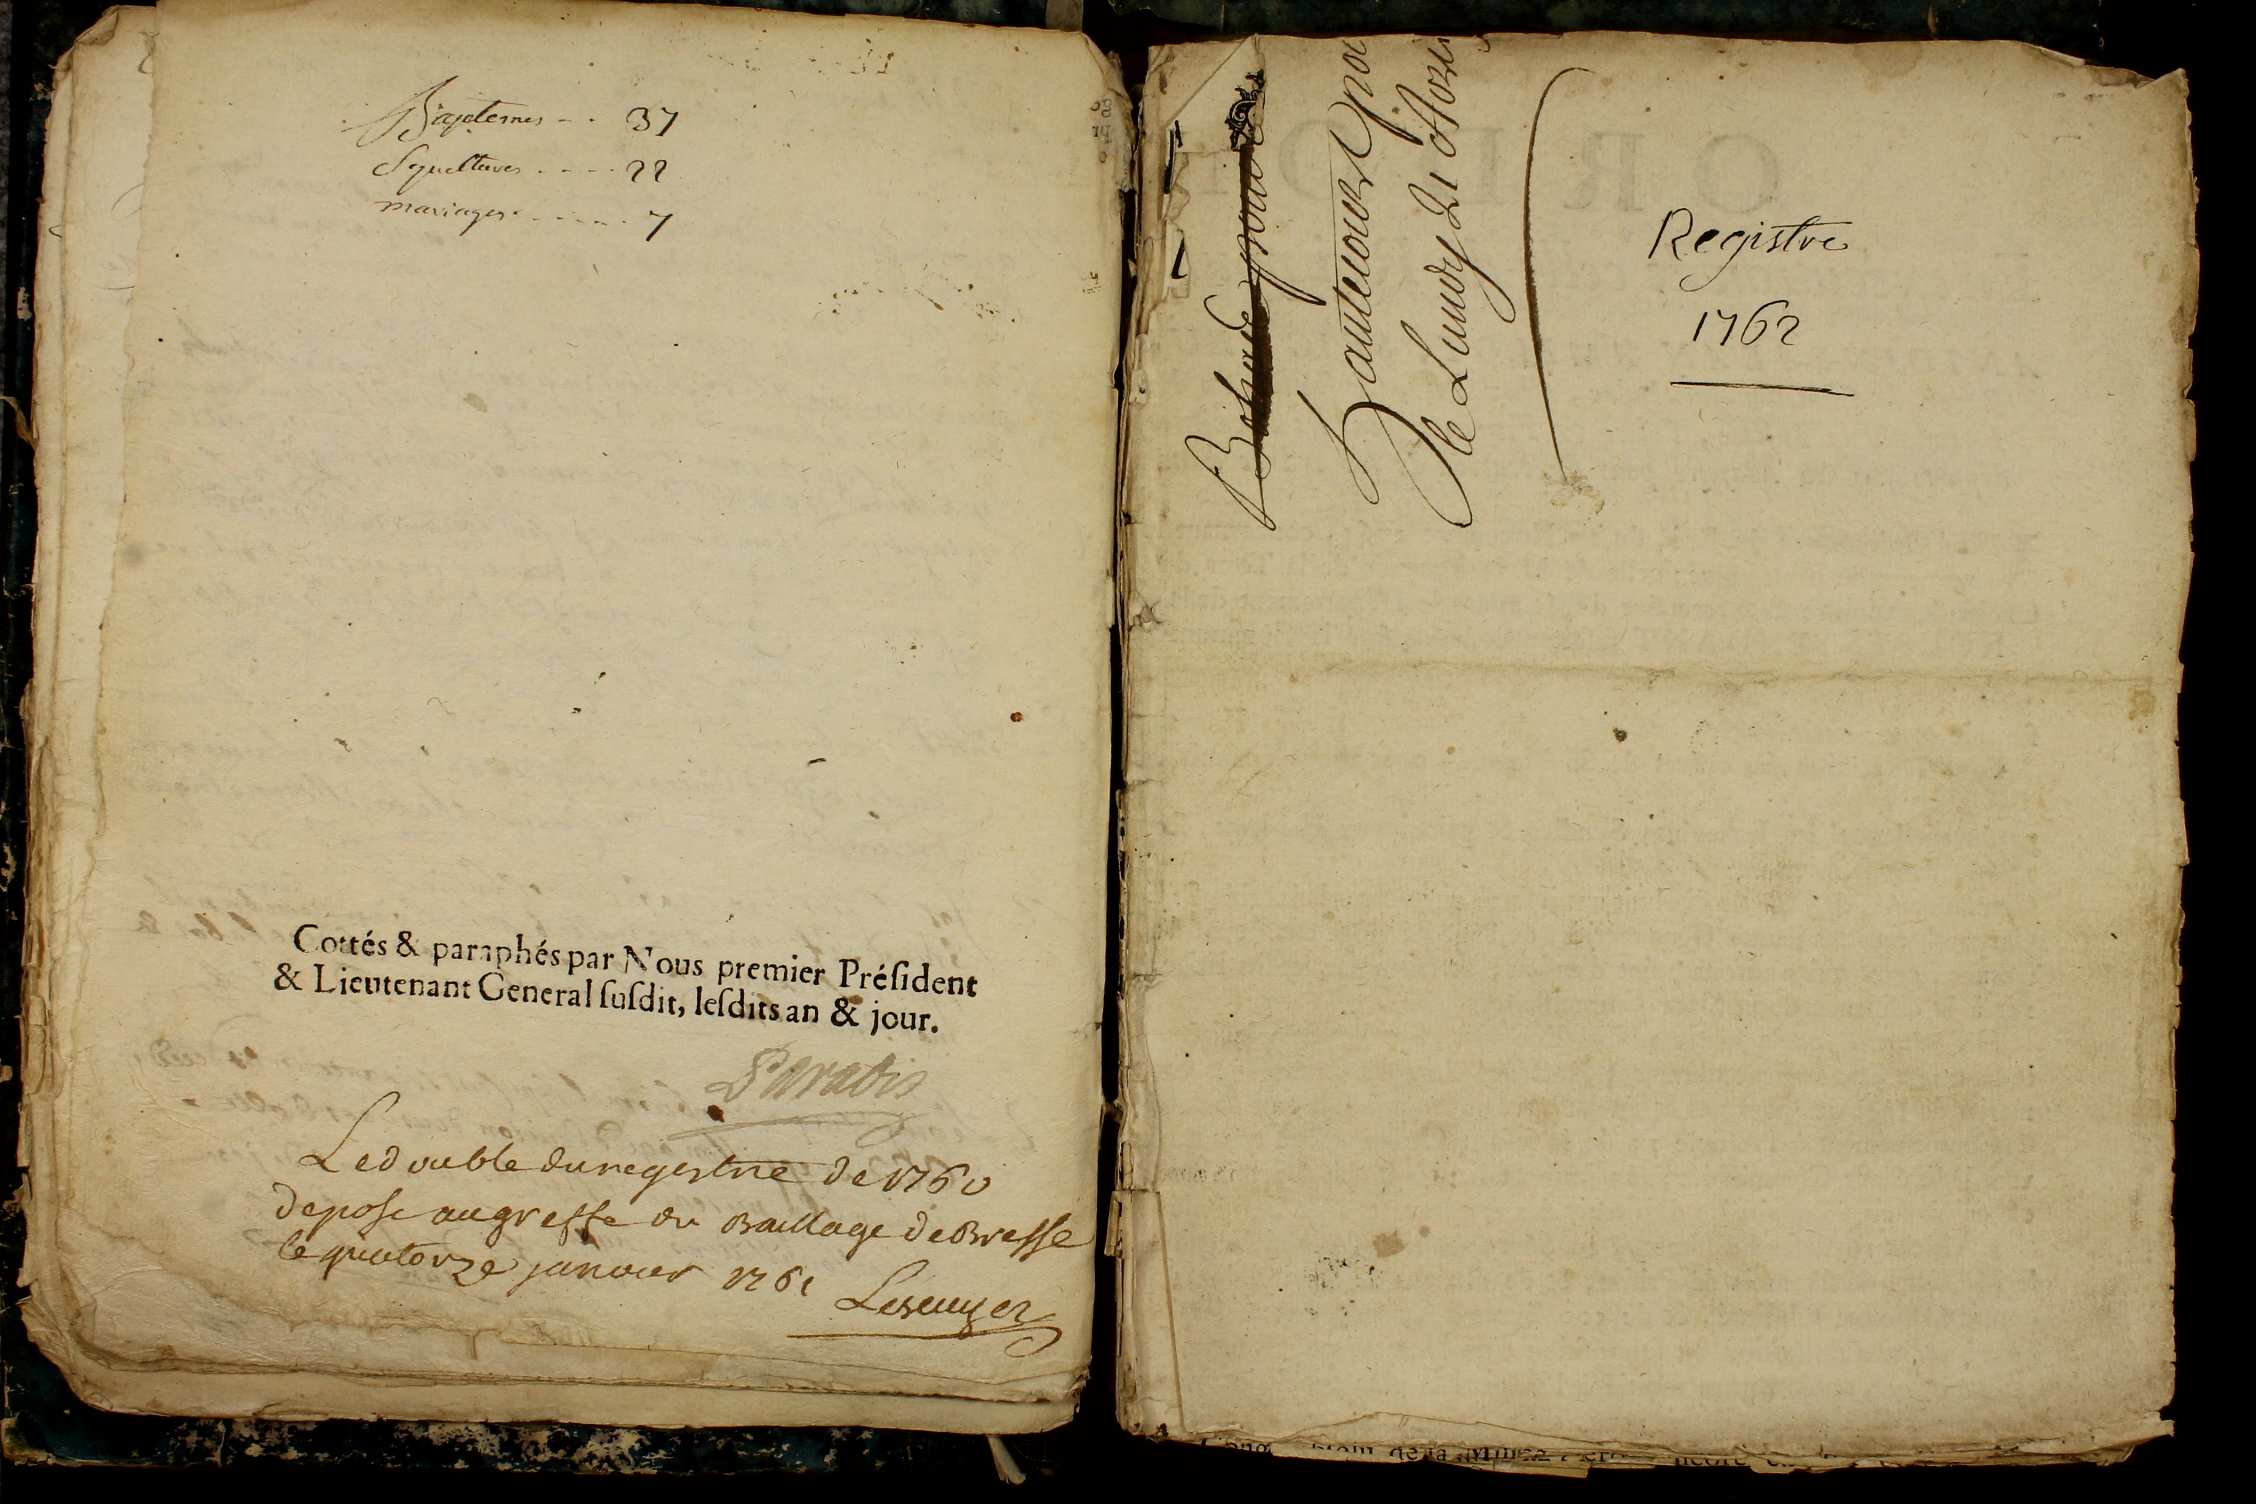 Baptemes - - 37
Sepultures - - - - 22
mariages - - - - - 7
Cottés & paraphés par Nous premier Préſident
& Lieutenant General ſuſdit, leſdits an & jour.
Paradis
Le double du regestre de 1760
depose au greffe du Baillage de Bresse
le quatorze janvier 1761
Bohas de
hautecourt pou
le Lundy 21 
Registre
1762